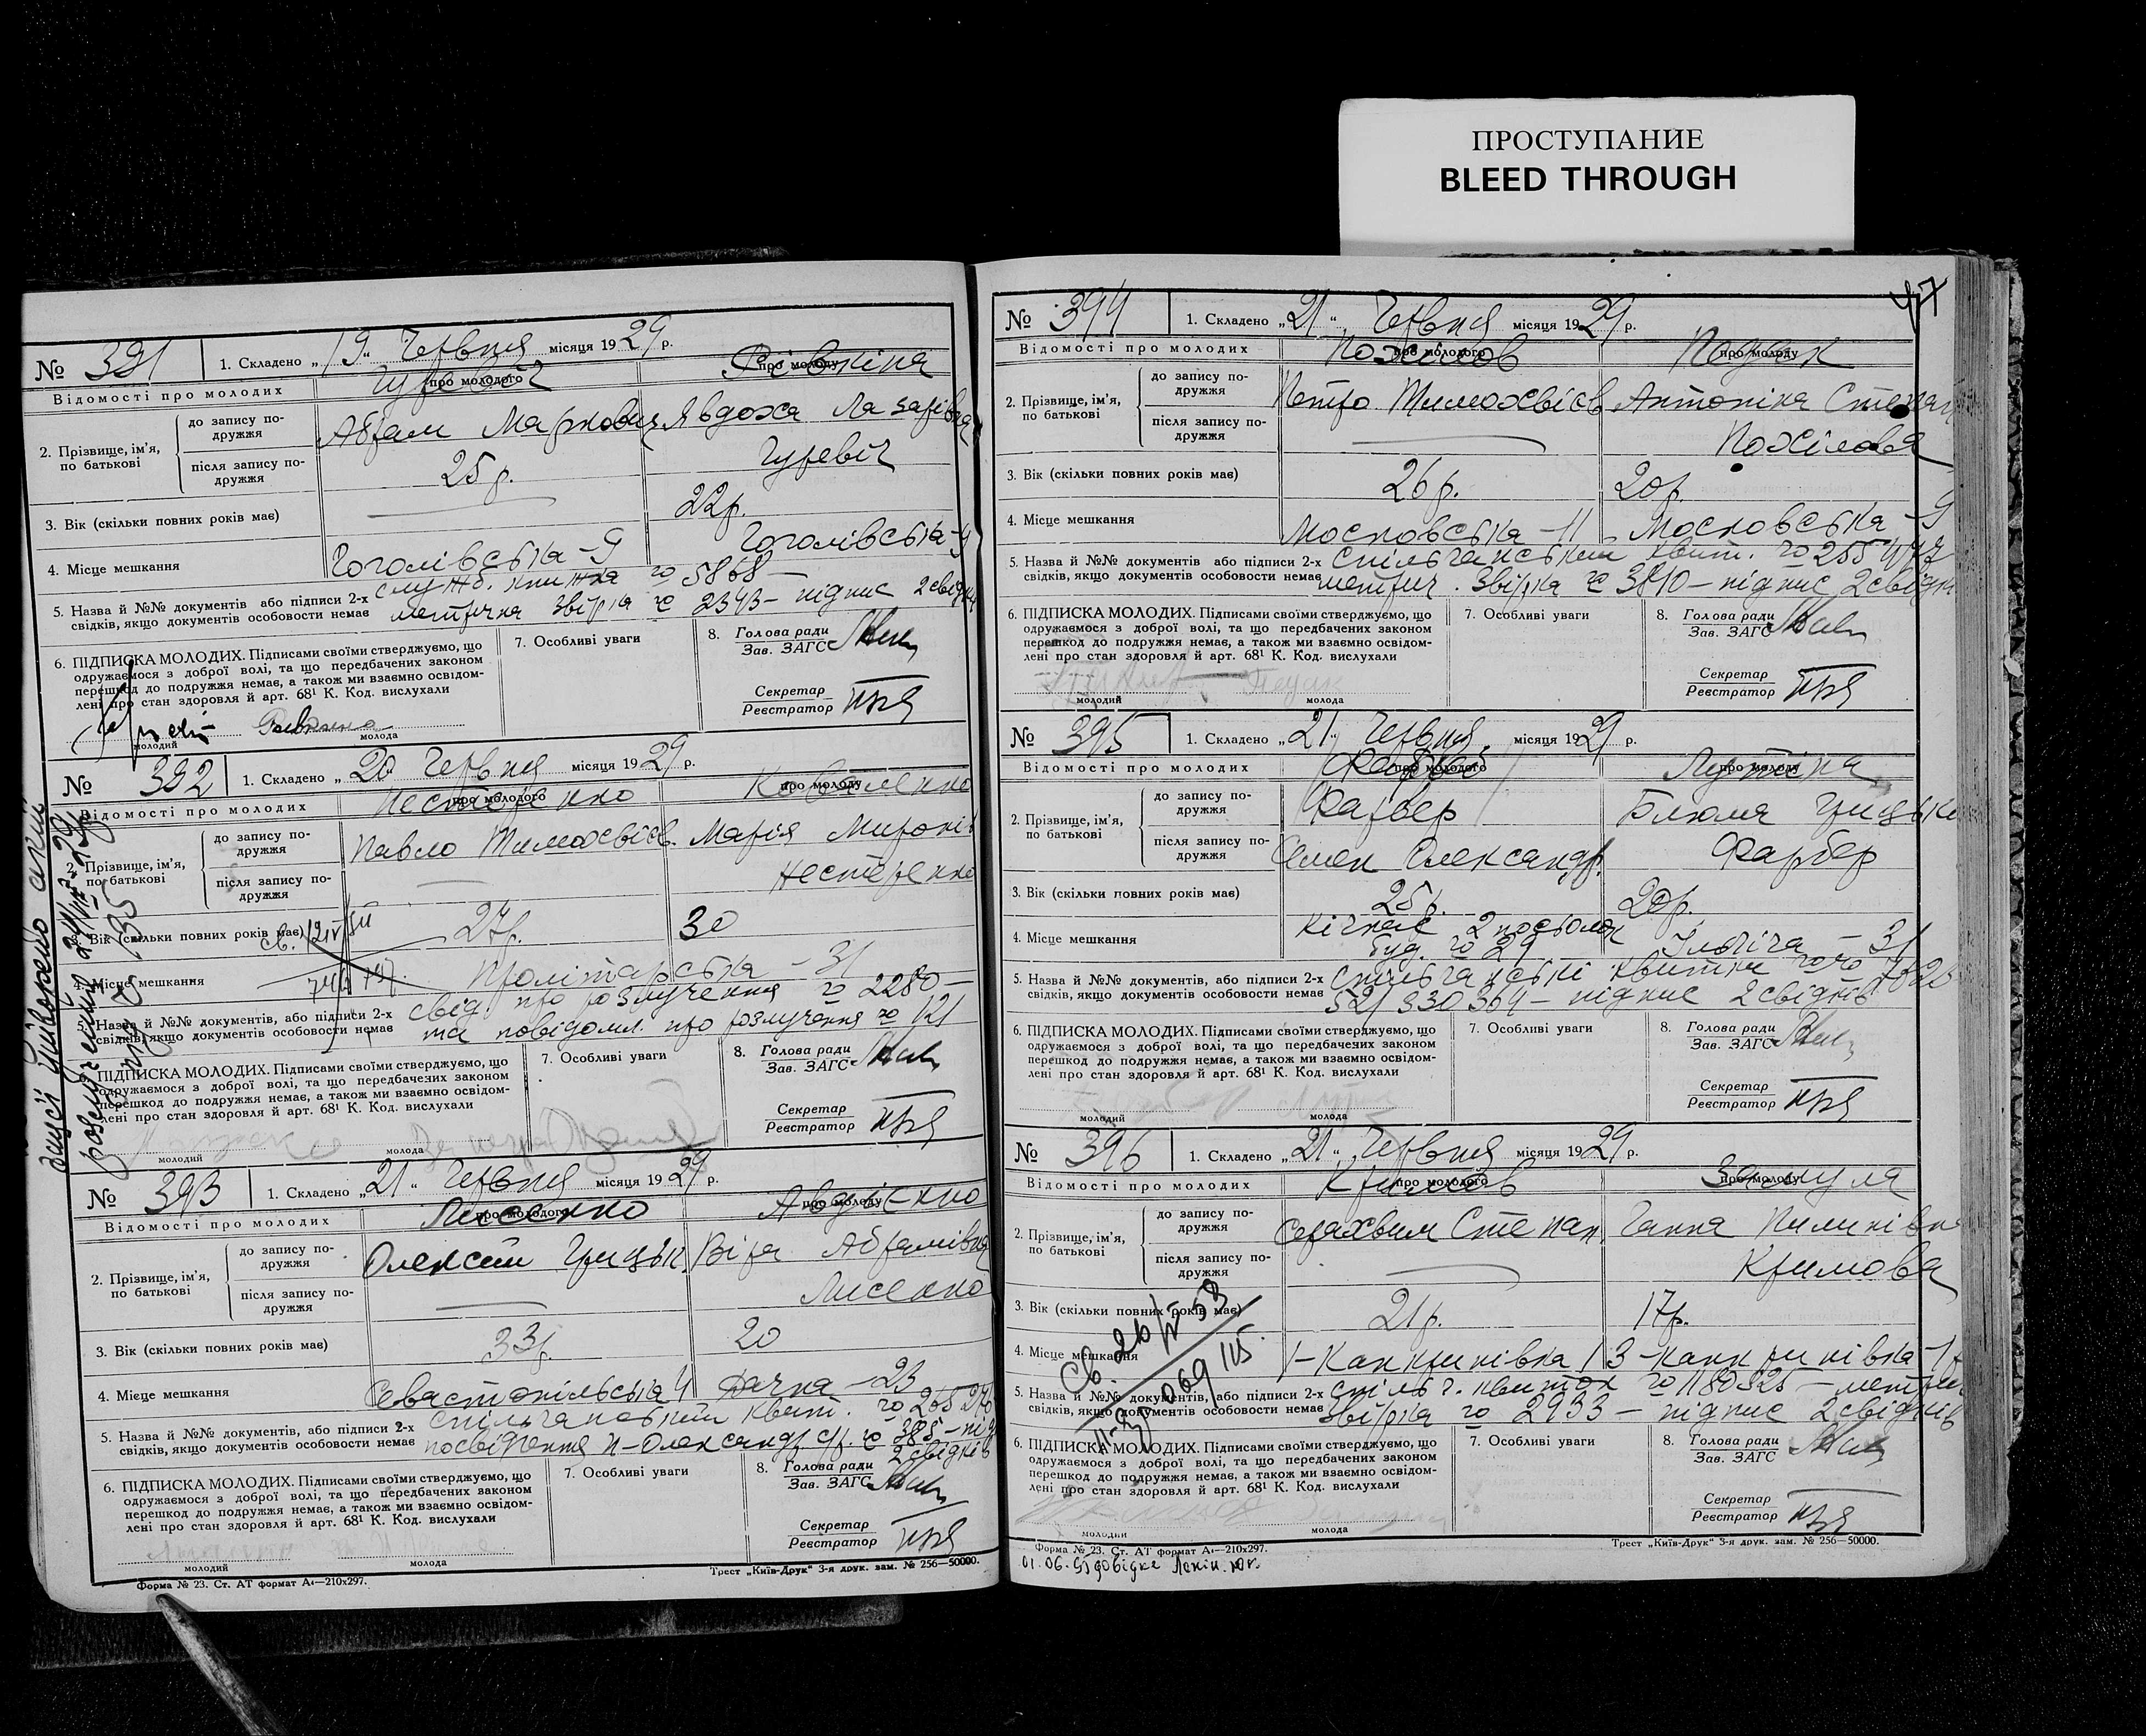 ПРОСТУПАНИЕ
BLEED THROUGH
№ 391 1. Складено „19“ Червня місяця 1929 р.
Відомості про молодих про молодого про молоду
Гуревіч Рівкіна
2. Прізвище, ім’я, по батькові
до запису по-
дружжя
Абрам Маркович Явдоха Лазарівна
після запису по-
дружжя
Гуревіч
25 р.
3. Вік (скільки повних років має) 22р.
4. Місце мешкання Гоголівська-9 Гоголівська-9
5. Назва й №№ документів або підписи 2-х служб. книжка № 5868
свідків, якщо документів особовости немає метрична звірка № 2343 – підпис 2 свідків
6. ПІДПИСКА МОЛОДИХ. Підписами своїми стверджуємо, що
одружаємося з доброї волі, та що передбачених законом
перешкод до подружжя немає, а також ми взаємно освідом-
лені про стан здоровля й арт. 68¹ К. Код. вислухали
молодий молода
7. Особливі уваги
8. Голова ради
Зав. ЗАГС
Секретар
Реєстратор
№ 392 1. Складено „20 Червня місяця 1929 р.
Відомості про молодих про молодого про молоду
Нестеренко Коваленко
2. Прізвище, ім’я, по батькові
до запису по-
дружжя
Павло Тимохвієв. Марія Миронів
після запису по-
дружжя
Нестеренко
3. Вік (скільки повних років має) 27р. 30
4. Місце мешкання Пролітарська – 31
5. Назва й №№ документів, або підписи 2-х свід. про розлучення № 2280 –
свідків, якщо документів особовости немає та повідомл. про розлучення № 121
ПІДПИСКА МОЛОДИХ. Підписами своїми стверджуємо, що
одружаємося з доброї волі, та що передбачених законом
перешкод до подружжя немає, а також ми взаємно освідом-
лені про стан здоровля й арт. 68¹ К. Код. вислухали
молодий молода
7. Особливі уваги
8. Голова ради
Зав. ЗАГС
Секретар
Реєстратор
№ 393 1. Складено „21“ Червня місяця 1929 р.
Відомості про молодих про молодого про молоду
Лисенко Авдієнко
2. Прізвище, ім’я, по батькові
до запису по-
дружжя
Олексій Грицьк. Віра Абрамівна
після запису по-
дружжя
Лисенко
3. Вік (скільки повних років має) 33р. 20
4. Місце мешкання Севастопільська 4 Дачна – 23
5. Назва й №№ документів, або підписи 2-х спільчанський квит.
свідків, якщо документів особовости немає посвідчення Н-Олександр. № 385 – 2 свідків
6. ПІДПИСКА МОЛОДИХ. Підписами своїми стверджуємо, що
одружаємося з доброї волі, та що передбачених законом
перешкод до подружжя немає, а також ми взаємно освідом-
лені про стан здоровля й арт. 68¹ К. Код. вислухали
молодий молода
7. Особливі уваги
8. Голова ради
Зав. ЗАГС
Секретар
Реєстратор
Форма № 23. Ст. АТ формат А₄—210х297. Трест „Київ-Друк“ 3-я друк. зам. № 256—50000.
47
№ 394 1. Складено „21“ Червня місяця 1929 р.
Відомості про молодих про молодого про молоду
Пожілов
2. Прізвище, ім’я, по батькові
до запису по-
дружжя
Петро Тимохвієв Антоніна Степан
після запису по-
дружжя
Пожілова
3. Вік (скільки повних років має) 26р. 20р.
4. Місце мешкання Московська – 11 Московська – 9
5. Назва й №№ документів або підписи 2-х спільчанський квит. № 255477
свідків, якщо документів особовости немає метрич. звірка № 3810 – підпис 2 свідк
6. ПІДПИСКА МОЛОДИХ. Підписами своїми стверджуємо, що
одружаємося з доброї волі, та що передбачених законом
перешкод до подружжя немає, а також ми взаємно освідом-
лені про стан здоровля й арт. 68¹ К. Код. вислухали
молодий молода
7. Особливі уваги
8. Голова ради
Зав. ЗАГС
Секретар
Реєстратор
№ 395 1. Складено „21“ Червня місяця 1929 р.
Відомості про молодих про молодого про молоду
2. Прізвище, ім’я, по батькові
до запису по-
дружжя
Фарбер Блюма Грицьків
після запису по-
дружжя
Семен Олександр. Фарбер
3. Вік (скільки повних років має) 25р. 20р.
4. Місце мешкання Кічкас 2 посьолок
буд. № 29 Ілліча – 31
5. Назва й №№ документів, або підписи 2-х спільчанські квитки
свідків, якщо документів особовости немає 521 330364 – підпис 2 свідків
6. ПІДПИСКА МОЛОДИХ. Підписами своїми стверджуємо, що
одружаємося з доброї волі, та що передбачених законом
перешкод до подружжя немає, а також ми взаємно освідом-
лені про стан здоровля й арт. 68¹ К. Код. вислухали
молодий молода
7. Особливі уваги
8. Голова ради
Зав. ЗАГС
Секретар
Реєстратор
№ 396 1. Складено „21“ Червня місяця 1929 р.
Відомості про молодих про молодого про молоду
Кримов
2. Прізвище, ім’я, по батькові
до запису по-
дружжя
Серахвим Степан. Ганна Пилипівна
після запису по-
дружжя
Кримова
3. Вік (скільки повних років має) 21р. 17р.
4. Місце мешкання
5. Назва й №№ документів, або підписи 2-х спільч. квиток № 1180325 – метрич
свідків, якщо документів особовости немає звірка № 2933 – підпис 2 свідків
6. ПІДПИСКА МОЛОДИХ. Підписами своїми стверджуємо, що
одружаємося з доброї волі, та що передбачених законом
перешкод до подружжя немає, а також ми взаємно освідом-
лені про стан здоровля й арт. 68¹ К. Код. вислухали
молодий молода
7. Особливі уваги
8. Голова ради
Зав. ЗАГС
Секретар
Реєстратор
Форма № 23. Ст. АТ формат А₄—210х297. Трест „Київ-Друк“ 3-я друк. зам. № 256—50000.